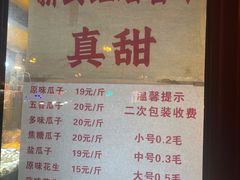 真甜
原味瓜子 19元/斤
五香瓜子 20元/斤
多味瓜子 20元/斤
焦糖瓜子 20元/斤
盐瓜子 19元/斤
原味花生 15元/斤
温馨提示
二次包装收费
小号0.2毛
中号0.3毛
大号0.5毛